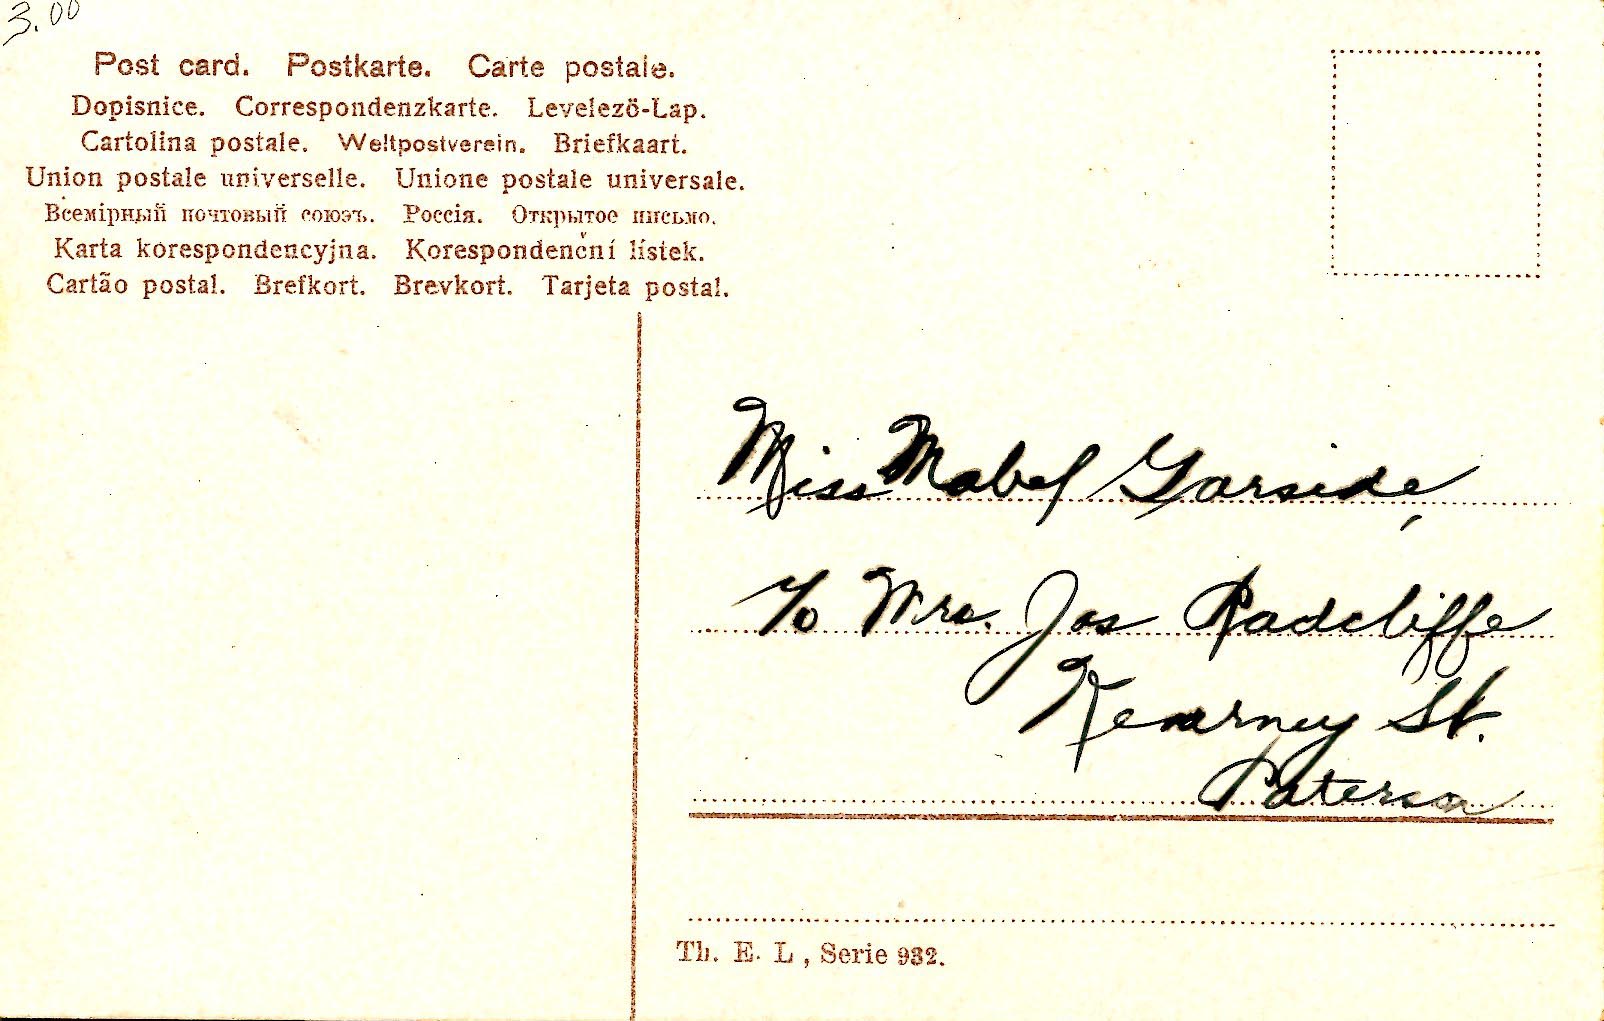 3.00
Post card. Postkarte. Carte postale.
Dopisnice. Correspondenzkarte. Levelező-Lap.
Cartolina postale. Weltpostverein. Briefkaart.
Union postale universelle. Unione postale universale.
Всемірный почтовый союзъ. Россія. Открытое письмо.
Karta korespondencyjna. Korespondenční lístek.
Cartão postal. Brefkort. Brevkort. Tarjeta postal.
Miss Mabel Garside,
c/o Mrs. Jos Radcliffe
Kearney St.
Paterson
Th. E. L., Serie 932.